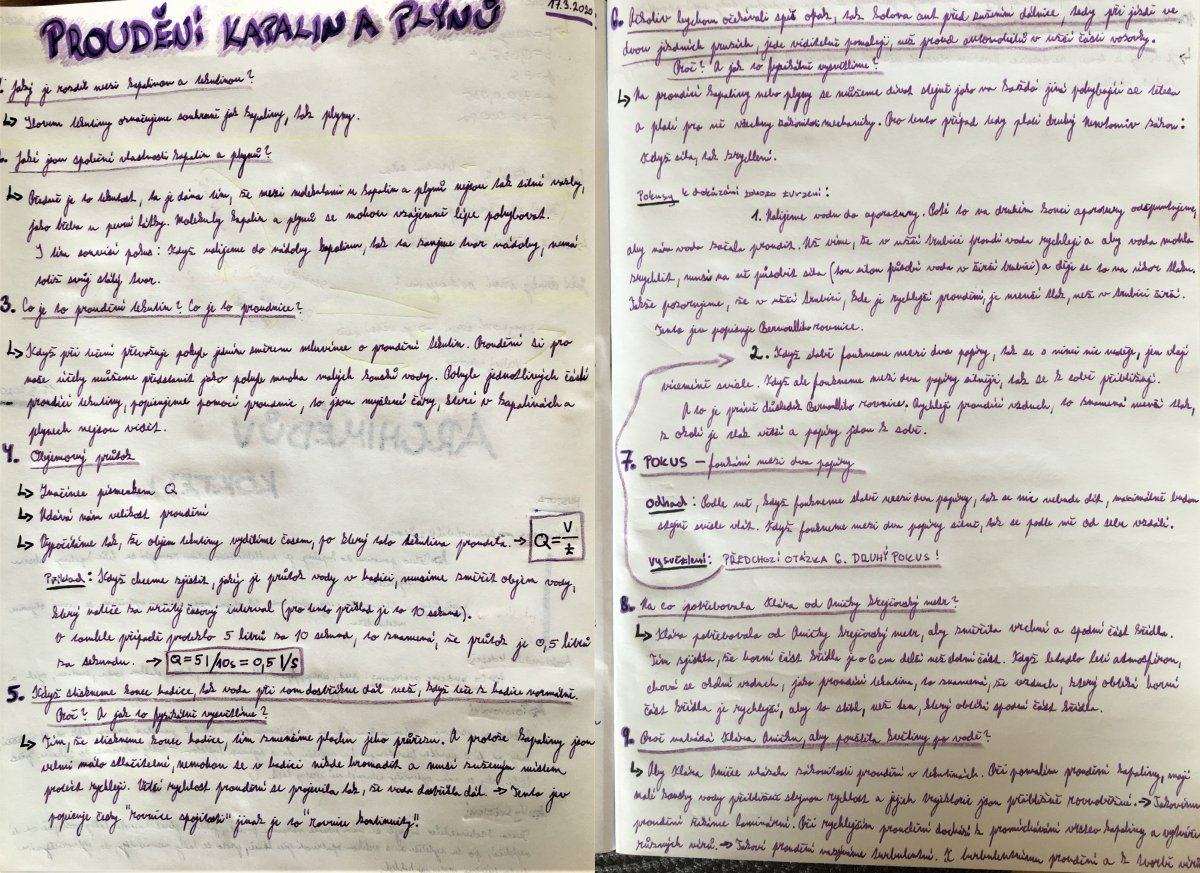 PROUDĚNÍ KAPALIN A PLYNŮ
17.3.2020
1. Jaký je rozdíl mezi kapalinou a tekutinou?
↳ Slovem tekutiny označujeme souhrnně jak kapaliny, tak plyny.
2. Jaké jsou společné vlastnosti kapalin a plynů?
↳ Přesně je to tekutost, ta je dána tím, že mezi molekulami u kapalin a plynů nejsou tak silné vazby,
jako třeba u pevné látky. Molekuly kapalin a plynů se mohou vzájemně lépe pohybovat.
S tím souvisí pokus: Když nalijeme do nádoby kapalinu, tak ta zaujme tvar nádoby, nemá
totiž svůj stálý tvar.
3. Co je to proudění tekutin? Co je to proudnice?
↳ Když při tečení převažuje pohyb jedním směrem mluvíme o proudění tekutin. Proudění si pro
naše účely můžeme představit jako pohyb mnoha malých kousků vody. Pohyb jednotlivých částí
proudící tekutiny, popisujeme pomocí proudnic, to jsou myšlené čáry, které v kapalinách a
plynech nejsou vidět.
4. Objemový průtok
↳ Značíme písmenkem Q
↳ Udává nám velikost proudění
↳ Vypočítáme tak, že objem tekutiny vydělíme časem, po který tato tekutina proudila. → Q = V/t
Příklad: Když chceme zjistit, jaký je průtok vody v hadici, musíme změřit objem vody,
který nateče za určitý časový interval (pro tento příklad je to 10 sekund).
V tomhle případě proteklo 5 litrů za 10 sekund, to znamená, že průtok je 0,5 litrů
za sekundu. → Q = 5l/10s = 0,5 l/s
5. Když stiskneme konec hadice, tak voda při tom dostříkne dál než, když teče z hadice normálně.
Proč? A jak to fyzikálně vysvětlíme?
↳ Tím, že stiskneme konec hadice, tím zmenšíme plochu jeho průřezu. A protože kapaliny jsou
velmi málo stlačitelné, nemohou se v hadici nikde hromadit a musí zúženým místem
protéct rychleji. Větší rychlost proudění se projevila tak, že voda dostříkla dál. → Tento jev
popisuje česky "rovnice spojitosti" jinak je to "rovnice kontinuity".
6. Ačkoliv bychom očekávali spíš opak, tak kolona aut před zúžením dálnice, tedy při jízdě ve
dvou jízdních pruzích, jede viditelně pomaleji, než proud automobilů v užší části vozovky.
Proč? A jak to fyzikálně vysvětlíme?
↳ Na proudící kapaliny nebo plyny se můžeme dívat stejně jako na každá jiná pohybující se tělesa
a platí pro ně všechny zákonitosti mechaniky. Pro tento případ tedy platí druhý Newtonův zákon:
Když síla, tak zrychlení.
Pokusy k dokázání tohoto tvrzení:
1. Nalijeme vodu do aparatury. Poté to na druhém konci aparatury odšpuntujeme,
aby nám voda začala proudit. Už víme, že v užší trubici proudí voda rychleji a aby voda mohla
zrychlit, musí na ně působit síla (tou silou působí voda v širší trubici) a děje se to na úkor tlaku,
Takže pozorujeme, že v užší trubici, kde je rychlejší proudění, je menší tlak, než v trubici širší.
Tento jev popisuje Bernoulliho rovnice.
2. Když slabě foukneme mezi dva papíry, tak se s nimi nic neděje, jen vlají
víceméně svisle. Když ale foukneme mezi dva papíry silněji, tak se k sobě přibližují.
A to je právě důsledek Bernoulliho rovnice. Rychleji proudící vzduch, to znamená menší tlak,
z okolí je tlak větší a papíry jdou k sobě.
7. POKUS – foukání mezi dva papíry
Odhad: Podle mě, když foukneme slabě mezi dva papíry, tak se nic nebude dít, maximálně budou
stejně svisle vlát. Když foukneme mezi dva papíry silně, tak se podle mě od sebe vzdálí.
Vysvětlení: PŘEDCHOZÍ OTÁZKA 6. DRUHÝ POKUS!
8. Na co potřebovala Klára od Aničky krejčovský metr?
↳ Klára potřebovala od Aničky krejčovský metr, aby změřila vrchní a spodní část křídla.
Tím zjistila, že horní část křídla je o 6 cm delší než dolní část. Když letadlo letí atmosférou,
chová se okolní vzduch, jako proudění tekutin, to znamená, že vzduch, který obtéká horní
část křídla je rychlejší, aby to stihl, než ten, který obtéká spodní část křídla.
9. Proč nabádá Klára Aničku, aby pouštěla květiny po vodě?
↳ Aby Klára Aničce ukázala zákonitosti proudění v tekutinách. Při pomalém proudění kapaliny, mají
malé kousky vody přibližně stejnou rychlost a jejich trajektorie jsou přibližně rovnoběžné. → Takovému
proudění říkáme laminární. Při rychlejším proudění dochází k promíchávání vrstev kapaliny a vytváření
různých vírů. → Takové proudění nazýváme turbulentní. K turbulentnímu proudění a k tvorbě vírů